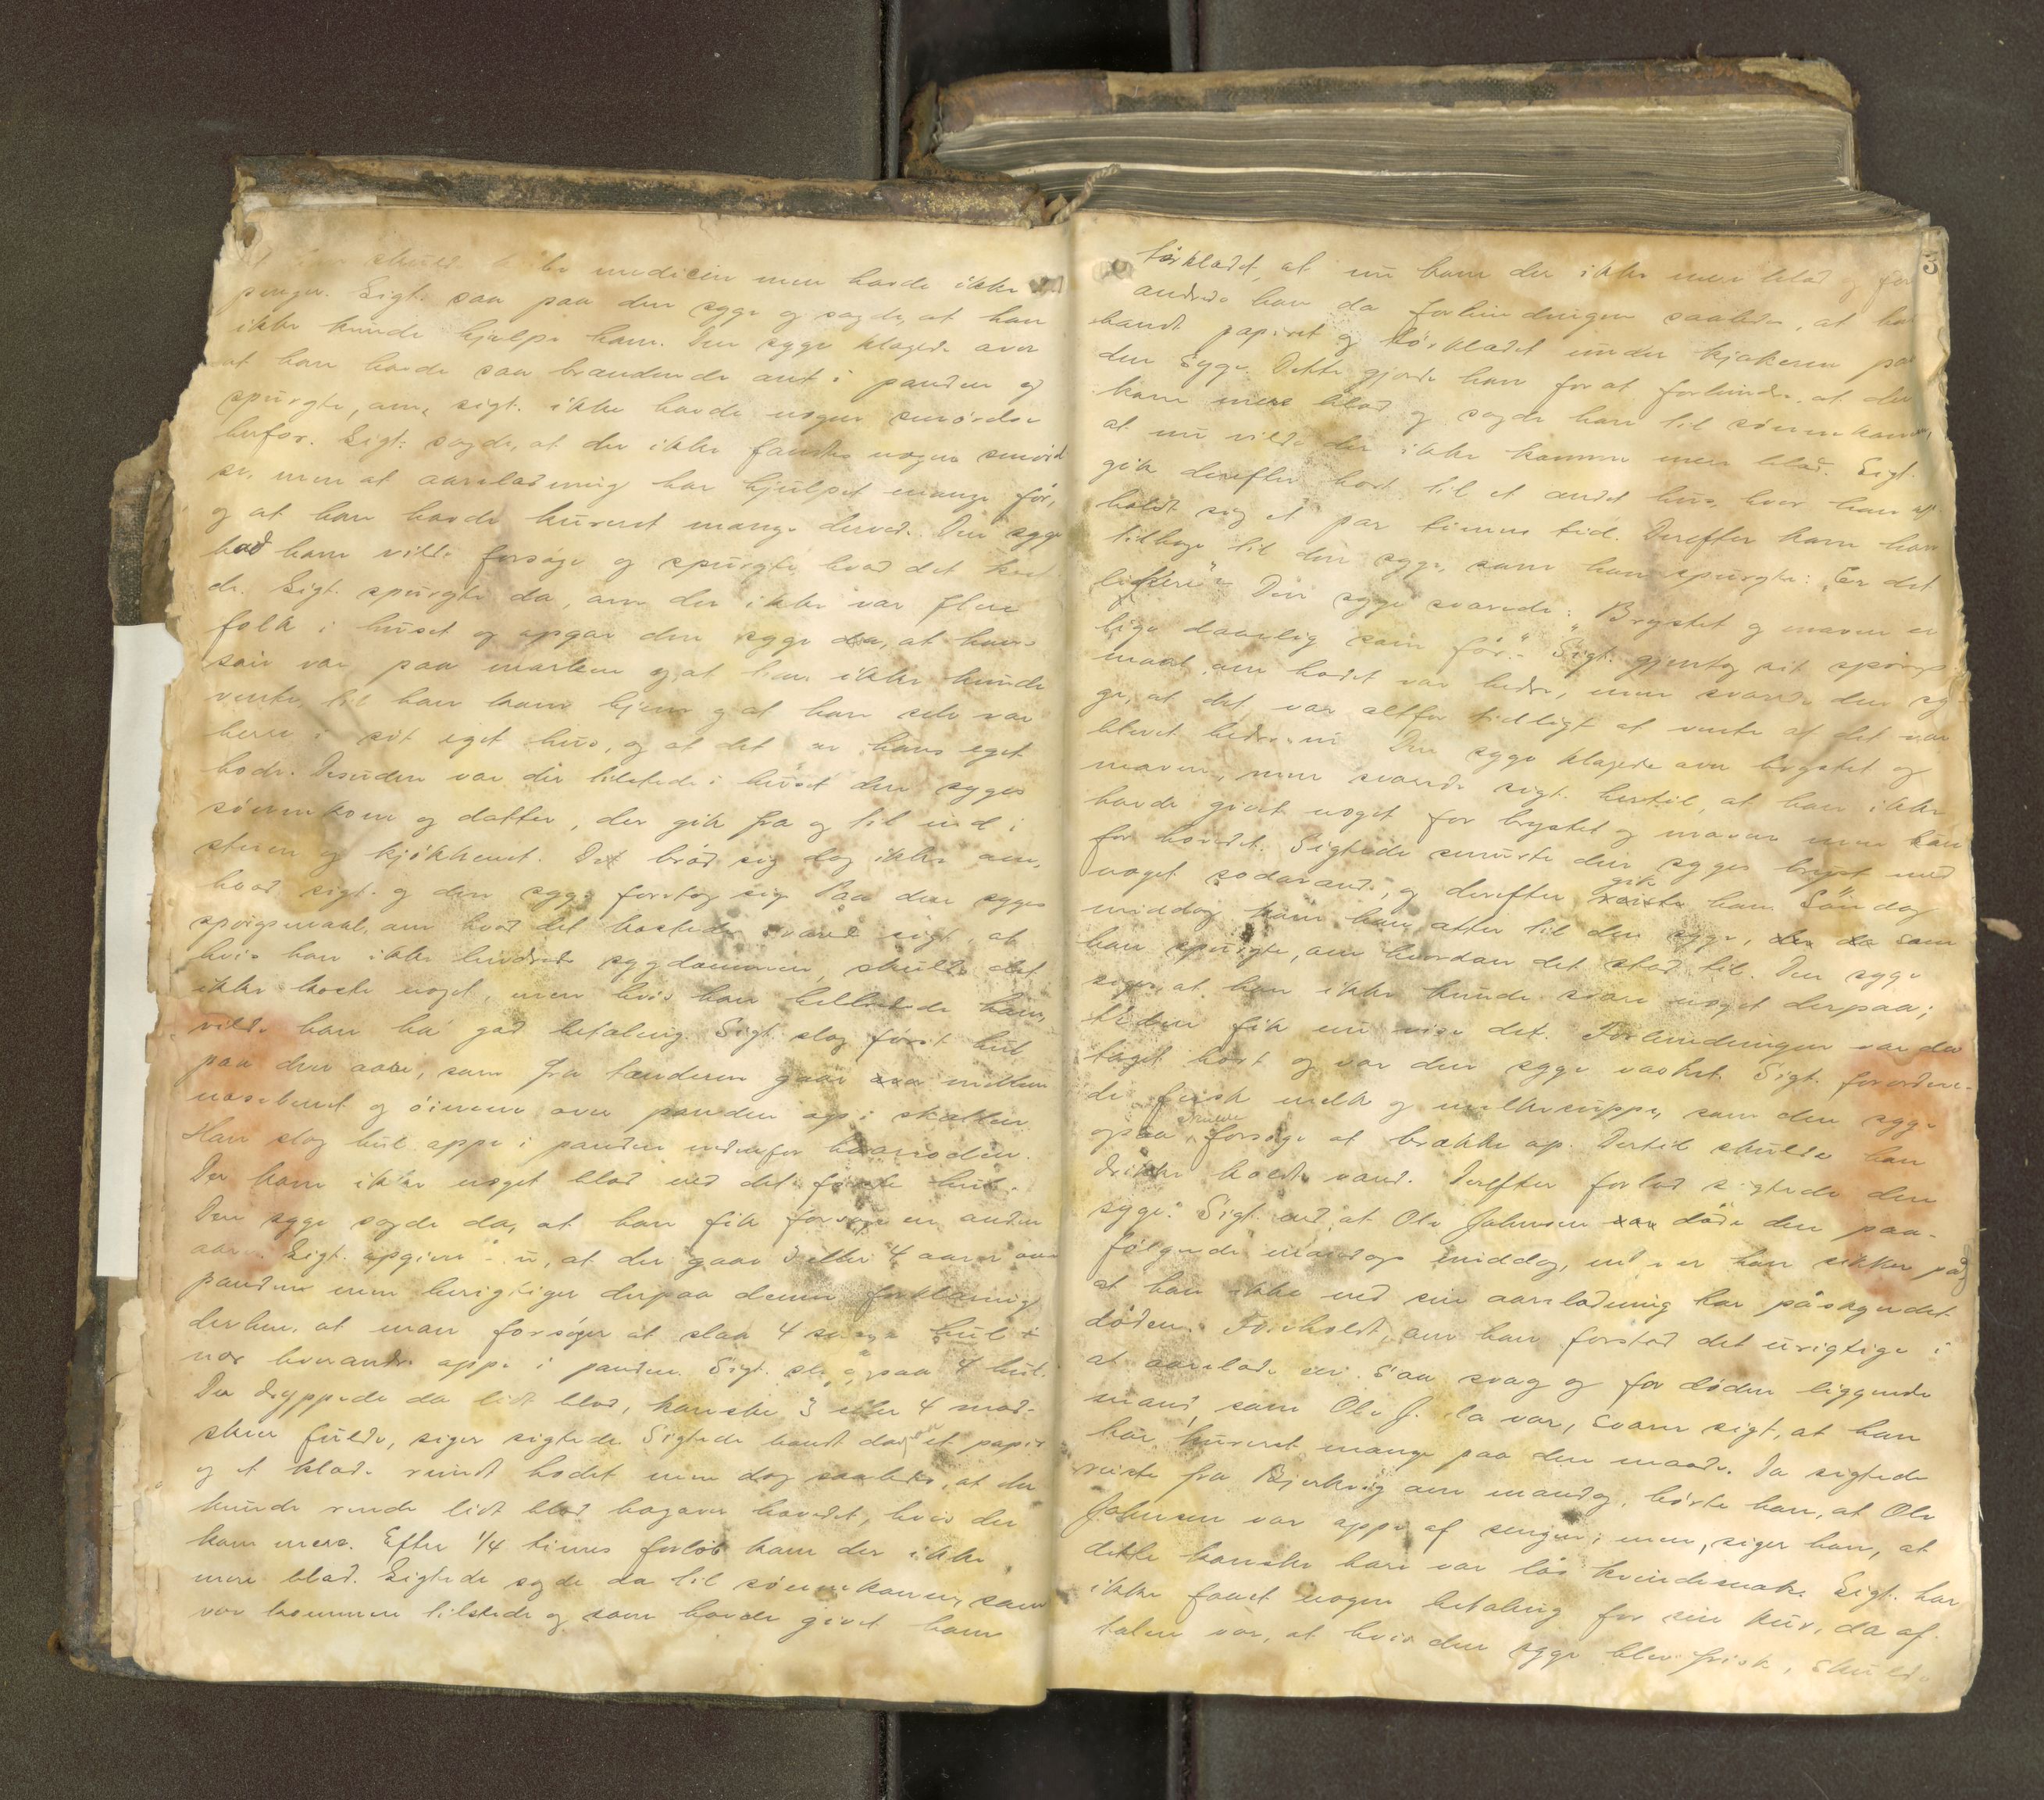 skulde medicin men havde ikke
penger. Sigt. saa paa den syge og sagde, at han
ikke kunde hjælpe ham. Den syge klagede over
at han havde saa brændende ont i panden og
spurgte, om sigt. ikke havde nogen smörelse
herfor. Sigt. sagde, at der ikke fandtes nogen
men at aareladning har hjulpet mange för,
og at han havde kureret mange derved. Den syge
bad ham vilde forsöge og spurgte, hvad det kost
de. Sigt. spurgte da, om der ikke var flere
folk i huset og opgav den syge da, at hans
sön var paa marken og at han ikke kunde
vente, til han kom hjem og at han selv var
herre i sit eget hus, og at det er hans eget
hode. Desuden var der tilstede i huset den syges
sönnekone og datter, der gik fra og til ind i
stuen og kjökkenet. De bröd sig dog ikke om,
hvad sigt. og den syge foretog sig. Paa den syges
spörgsmaal, om hvad det kostede svared sigt. at
hvis han ikke lindrede sygdommen, skulde det
ikke koste noget, men hvis han helbredede ham,
vilde han ha god betaling. Sigt. slog först hul
paa den aare, som fra tænderne gaar mellem
nesebenet og öinene over panden op i skallen
Han slog hul oppe i panden nedenfor haarroden.
Der kom ikke noget blod ved det förste hul.
Den syge sagde da, at han fik forsöge en anden
aare. Sigt. opgiver, at der gaar 3 eller 4 aarer over
panden men berigtiger derpaa denne forklaring
derhen, at man forsöger at slaa 4 hul i
nær hverandre oppe i panden. Sigt. slog ogsaa 4 hul.
Der dryppede da lidt blod, kanske 3 eller 4 mad-
skeer fulde, siger sigtede. Sigtede bandt da et papir
og et klæde rundt hodet men dog saaledes, at der
kunde rende lidt blod bagover hovedet, hvis der
kom mere. Efter 1/4 times forlöb kom der ikke
mere blod. Sigtede sagde da til sönnekonen, som
var kommen tilstede og som havde givet ham
3
törklædet, at nu kom der ikke mere blod og for
andrede han da forbindingen saaledes, at han
bandt papiret og törklædet under kjakerne paa
den syge. Dette gjorde han for at forhindre, at der
kom mere blod og sagde han til sönnekonen,
at nu vilde der ikke komme mere blod. Sigt.
gik derefter bort til et andet hus, hvor han op
holdt sig et par timers tid. Derefter kom han
tilbage til den syge, som han spurgte: "Er det
Den syge svarede: "Brystet og maven er
lige daarlig som för." Sigt. gjentog sit spörgs
maal om hodet var bedre, men svarede den sy
ge, at det var altfor tidligt at vente at det var
blevet bedre nu. Den syge klagede over brystet og
maven, men svarede sigt. hertil, at han ikke
havde givet noget for brystet og maven men kun
for hovedet. Sigtede smurte den syges bryst med
noget sodavand, og derefter gik han. Söndag
middag kom han atter til den syge, som
han spurgte, om hvordan det stod til. Den syge
siger, at han ikke kunde svare noget derpaa;
tiden fik nu vise det. Forbindingen var da
taget bort og var den syge vasket. Sigt. forordne-
de frisk melk og melkesuppe, som den syge
ogsaa skulde forsöge at brække op. Dertil skulde han
drikke koldt vand. Derefter forlod sigtede den
syge. Sigt. ved, at Ole Johnsen döde den paa-
fölgende mandags middag, men er han sikker paa
at han ikke ved sin aareladning har påskyndet
döden. Foreholdt, om han forstod det urigtige i
at aarelade en saa svag og for döden liggende
mand, som Ole J. da var, svarer sigt, at han
har kureret mange paa den maade. Da sigtede
reiste fra Bjerkvig om mandag, hörte han, at Ole
Johnsen var oppe af sengen; men, siger han, at
dette kanske bare var lös kvindesnak. Sigt. har
ikke faaet nogen betaling for sin kur, da af
talen var, at hvis den syge blev frisk, skulde